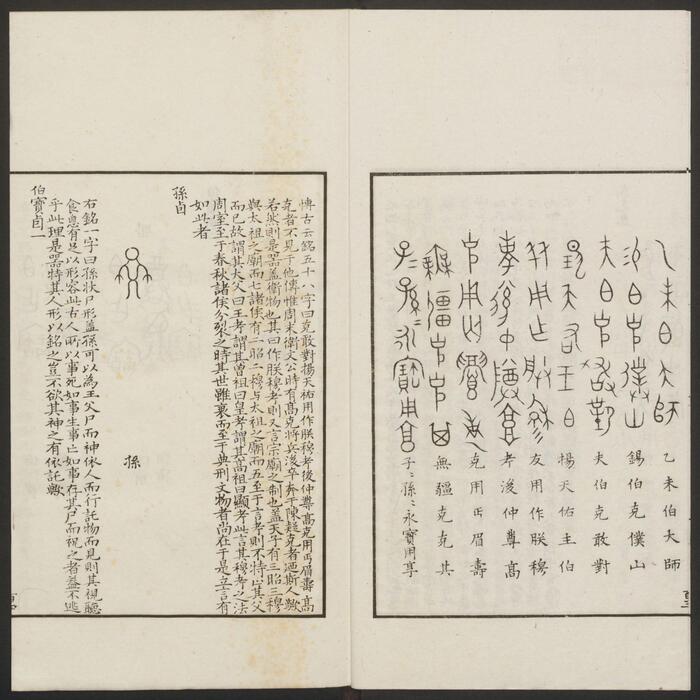 乙未伯大師
錫伯克僕山
夫伯克敢對
揚天佑主伯
友用作朕穆
考後仲尊高
克用丐眉壽
無疆克克其
子=孫=永寶用享
博古云銘五十八字曰克敢對揚天佑用作朕穆考後仲尊高克用丐眉壽高
克者不見于他傳惟周末衛文公時有高克將兵浚卒奔于陳疑克者迺斯人歟
若然則是器蓋衛物也其曰作朕穆考則又言宗廟之制也蓋天子有三昭三穆
與太祖之廟而七諸侯有二昭二穆與太祖之廟而五至于言考則不特止其父
而已故謂其大父曰王考謂其曾祖曰皇考謂其高祖曰顯考此言其穆考之法
周室至于春秋諸侯分裂之時其世雖衰而至于典刑文物者尚在于是立言有
如此者
孫卣
孫
右銘一字曰孫狀尸形蓋孫可以為王父尸而神依人而行託物而見則其視聽
食息有足以形容此古人所以事死如事生事亡如事存其尸而祝之者蓋不逃
乎此理是器特其人形以銘之豈不欲其神之有依託歟
伯寶卣一